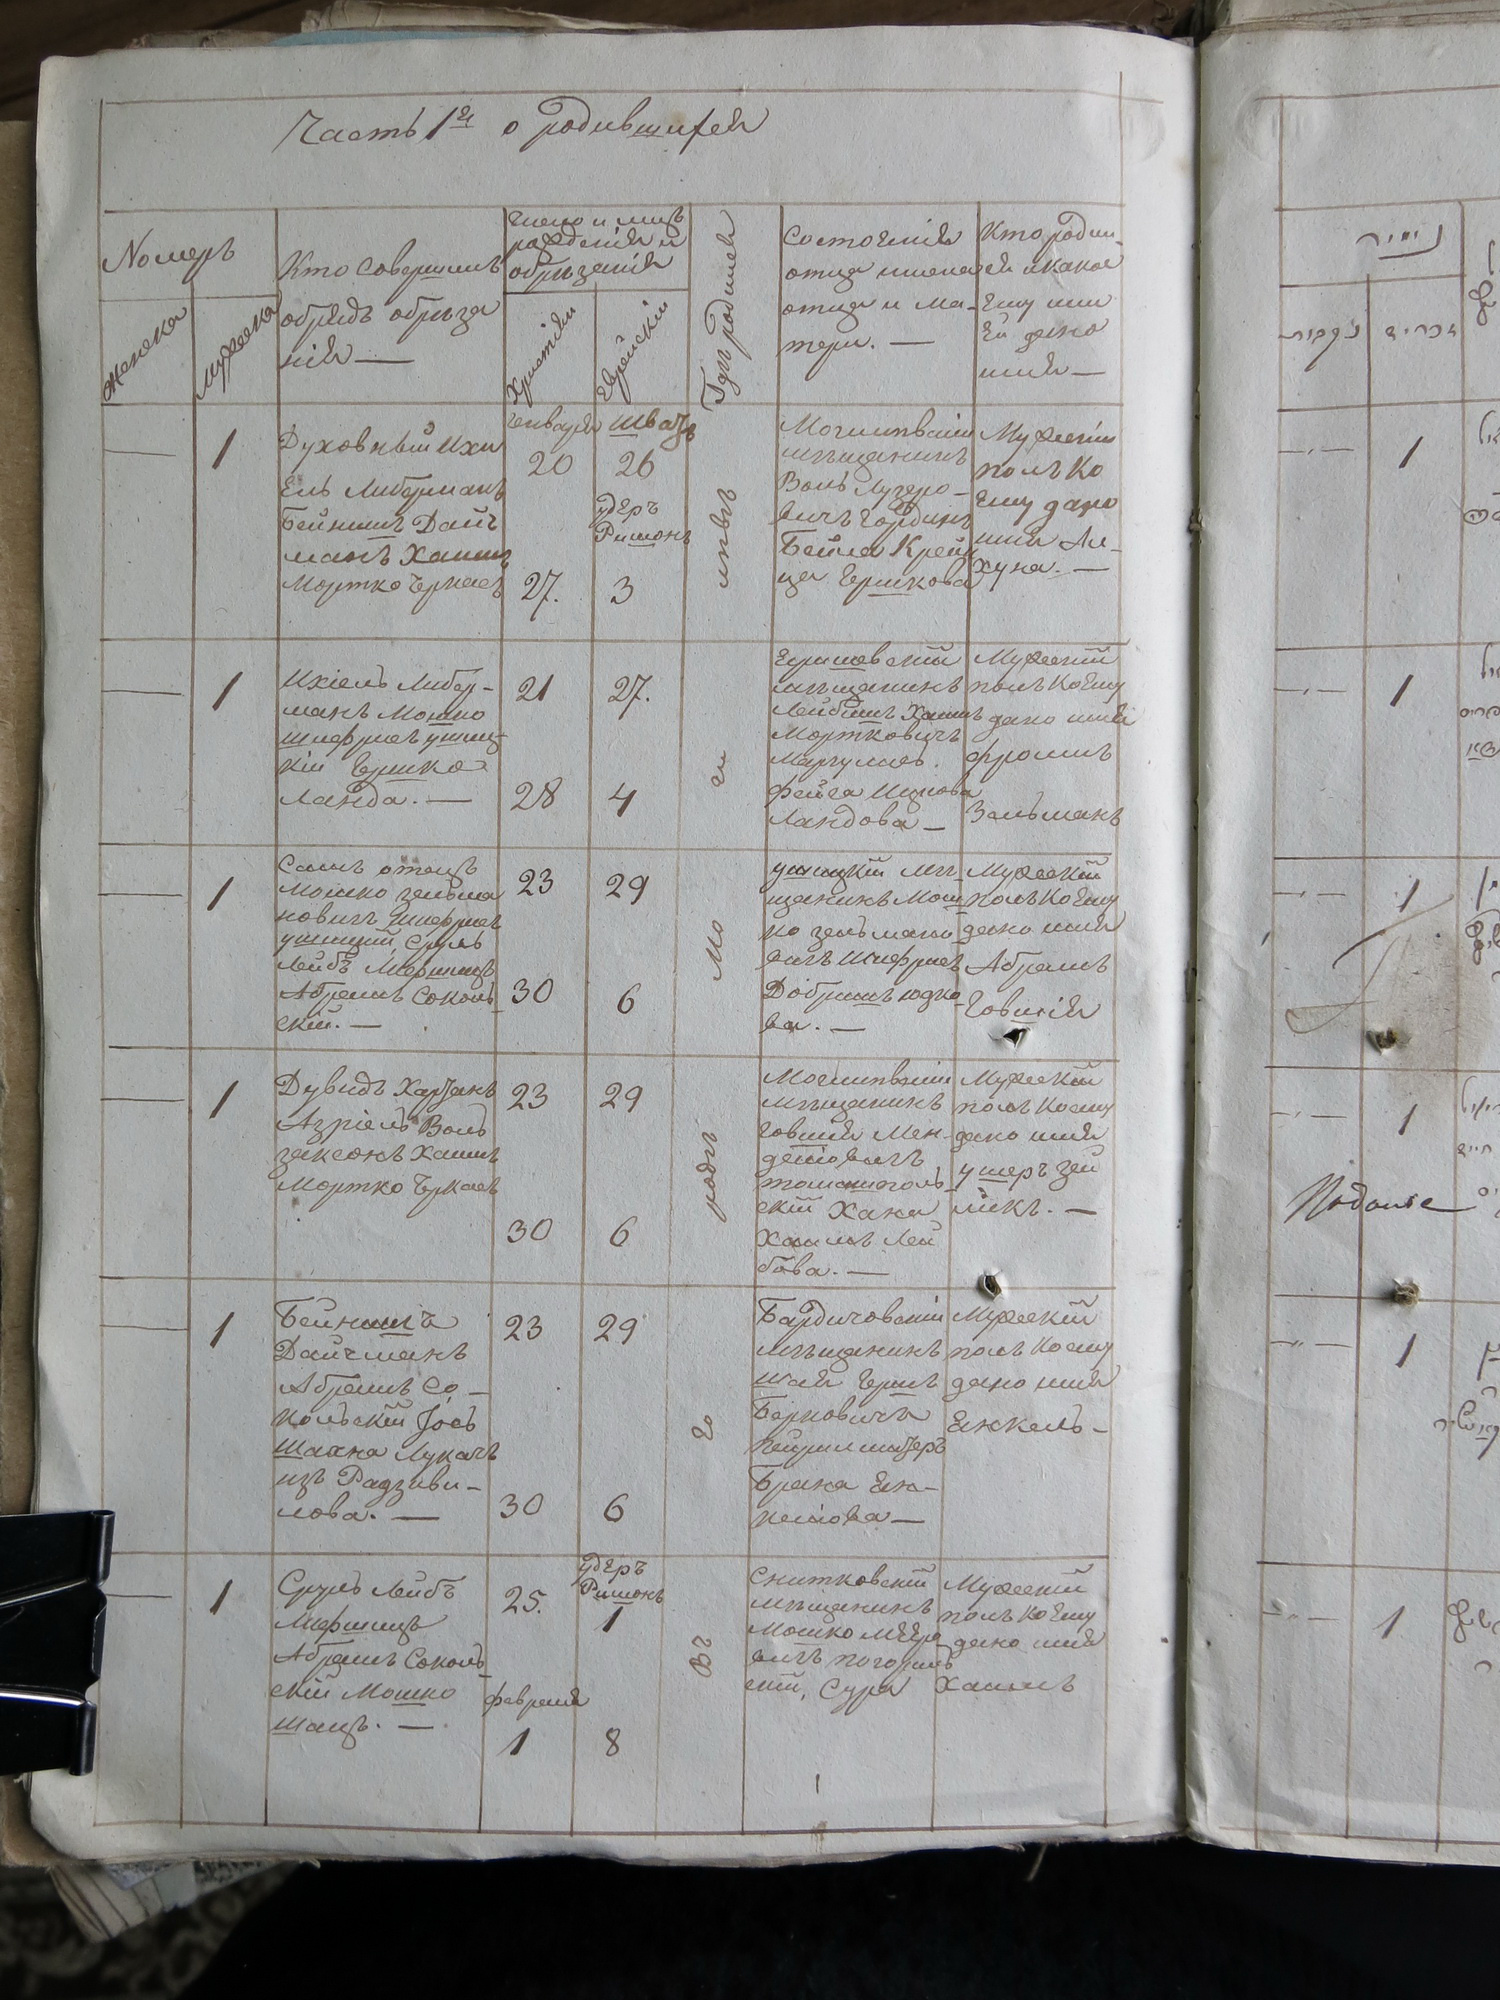 Часть 1я о родившихся
Номеръ
Женска
Мужеска
Кто совершилъ
обрядъ обреза
нія —
число и мць
рожденія и
обрѣзанія
Христіян
Еврейскій
Гдѣ родился
Состоянія
отца имена
отца и ма-
тери. —
Кто родил-
ся и какое
Ему или
Ей дано
имя —
— 1
Духовный Ихи
Ель Либерманъ
Бейнишъ Дайч
манъ Хаимъ
Мортко Черкасъ
Генваря
20
27.
Шватъ
26
удеръ
Ришонъ
3
Могилевскій
мѣщанинъ
Волъ Лузеро-
вичъ Гординъ
Бейла Крейн
ца Гершкова
Мужескій
полъ Ко
Ему дано
имя Ал-
хуна. —
— 1
Ихіель Либер-
манъ Мошко
Шнефрисъ ушиц-
кій Гершко
Ланда. —
21
28
27.
4
Еришевскій
мѣщанинъ
Лейбишъ Хаимъ
Мортковичъ
Маргулисъ.
Фейга Ицкова
Ландова —
Мужескій
полъ Коему
дано имя
Фроимъ
Зельманъ
— 1
Самъ отецъ
Мошко зельма
новичъ Шнефрисъ
ушицкій, Сруль
Лейбъ Мефшицъ
Абрамъ Соколь-
скій. —
23
30
29
6
ушицкій мѣ-
щанинъ Мош-
ко зельмано
вичъ Шнефрисъ
Добришъ Юдко
ва. —
Мужескій
полъ Коему
дано имя
Абрамъ
Говшія
— 1
Дувидъ Харзанъ
Азріель Воль
заксонъ Хаимъ
Мортко Черкасъ
23
30
29
6
Могилевскій
мѣщанинъ
Говшія Мен-
делiовичъ
томашполь-
скій Хана
Хаимъ Лей
бова. —
Мужескій
полъ Коему
дано имя
ушеръ Зей
ликъ. —
— 1
Бейнишъ
Дайчманъ
Абрамъ Со-
кольскій Іосъ
Шахна Лукачъ
изъ Радзиви-
лова. —
23
30
29
6
Бардичовскій
мѣщанинъ
Шая Гершъ
Берковичъ
Браха Ен-
келіова —
Мужескій
полъ Коему
дано имя
Енкель-
— 1
Сруль Лейбъ
Мефшицъ
Абрамъ Соколь-
скій Мошко
Шацъ. —
25.
февраля
1
удеръ
Ришонъ
1
8
Снитковскій
мѣщанинъ
Мошко Мееро
вичъ погориль
скій, Сура
Мужескій
полъ Коему
дано имя
Хаимъ
Въ
го
родѣ
мо
ги
левѣ
זכרים
נקבות
1
1
1
1
1
1